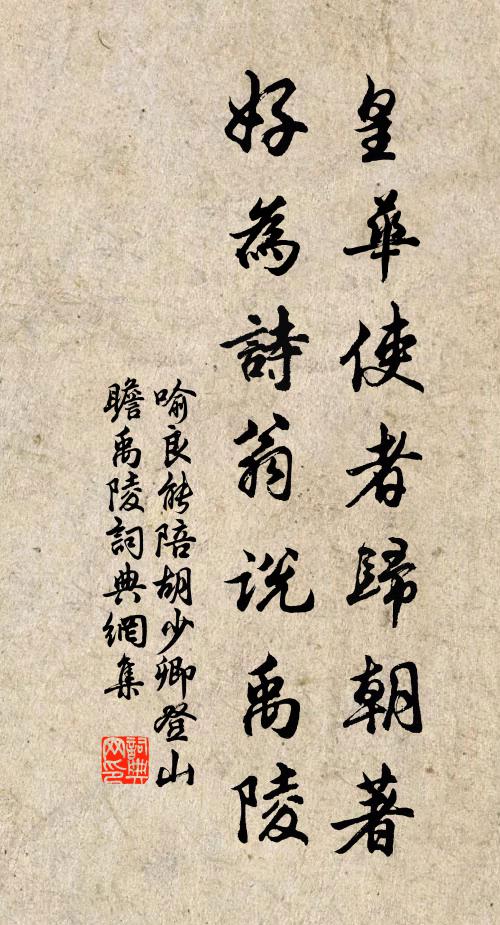 皇華使者歸朝著
好為詩翁說禹陵
喻良能陪胡少卿登山
瞻禹陵詞典網集
詞典
网印